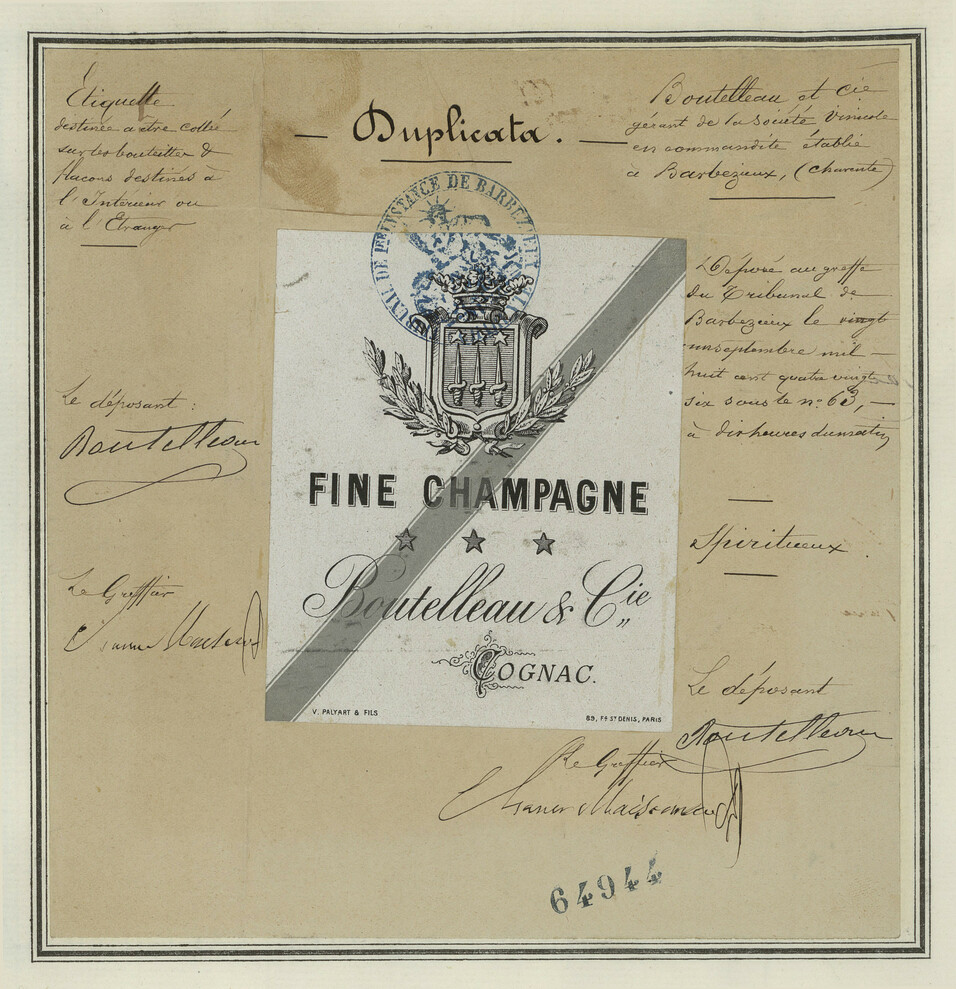 Étiquette
destinée a être collée
sur les bouteilles &
flacons destinés à
l'Intérieur ou
à l'Étranger
— Duplicata. —
Boutelleau et Cie
gérant de la Société Vinicole
en commandite établie
à Barbezieux, (Charente)
DE 1ère INSTANCE DE BARBEZIEUX
Déposé au greffe
du Tribunal de
Barbezieux le vingt
un septembre mil
huit cent quatre vingt
six sous le n° 63, —
à dix heures du matin
Le déposant :
Boutelleau
FINE CHAMPAGNE
Boutelleau & Cie
COGNAC.
V. PALYART & FILS
89, Fg ST DENIS, PARIS
Spiritueux
Le Greffier
Le déposant
Boutelleau
Le Greffier
64944